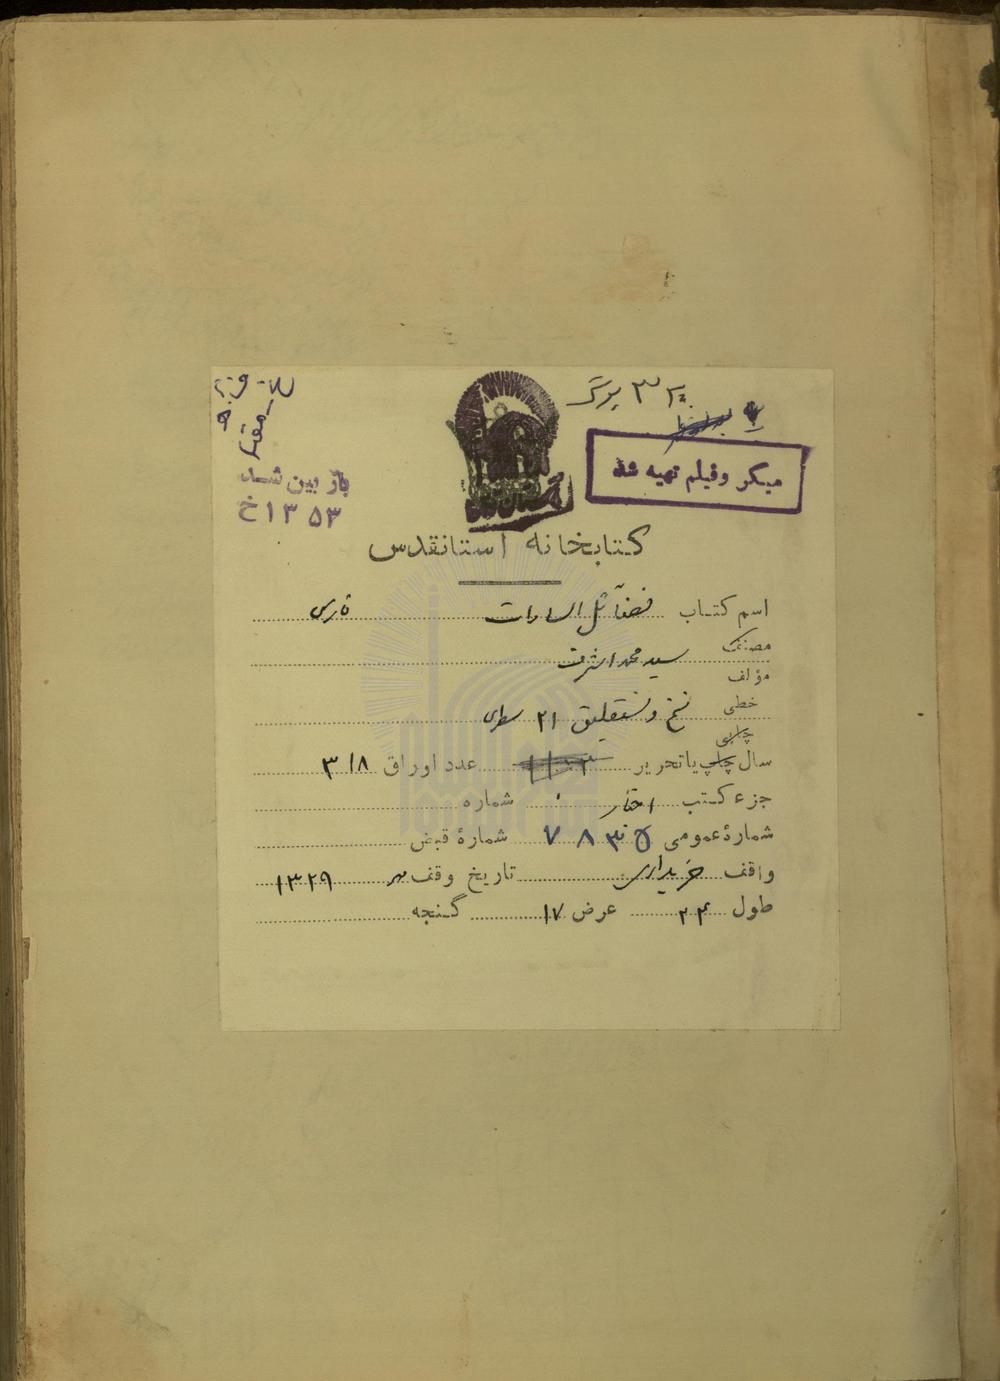 برگ
میکر وفیلم تهیه شد
باز بین شد
۱۳۵۳ خ
کتابخانه آستانقدس
اسم کتاب فضائل السادات فارسی
مصنف
مؤلف سید محمد اشرف
خطی نسخ و نستعلیق ۲۱ سطری
چاپی
سال چاپ یا تحریر عدد اوراق ۳۱۸
جزء کتب اخبار شماره
شمارهٔ عمومی ۷۸۳۵ شمارهٔ قبض
واقف خریداری تاریخ وقف مهر ۱۳۲۹
طول عرض ۱۷ گنجه